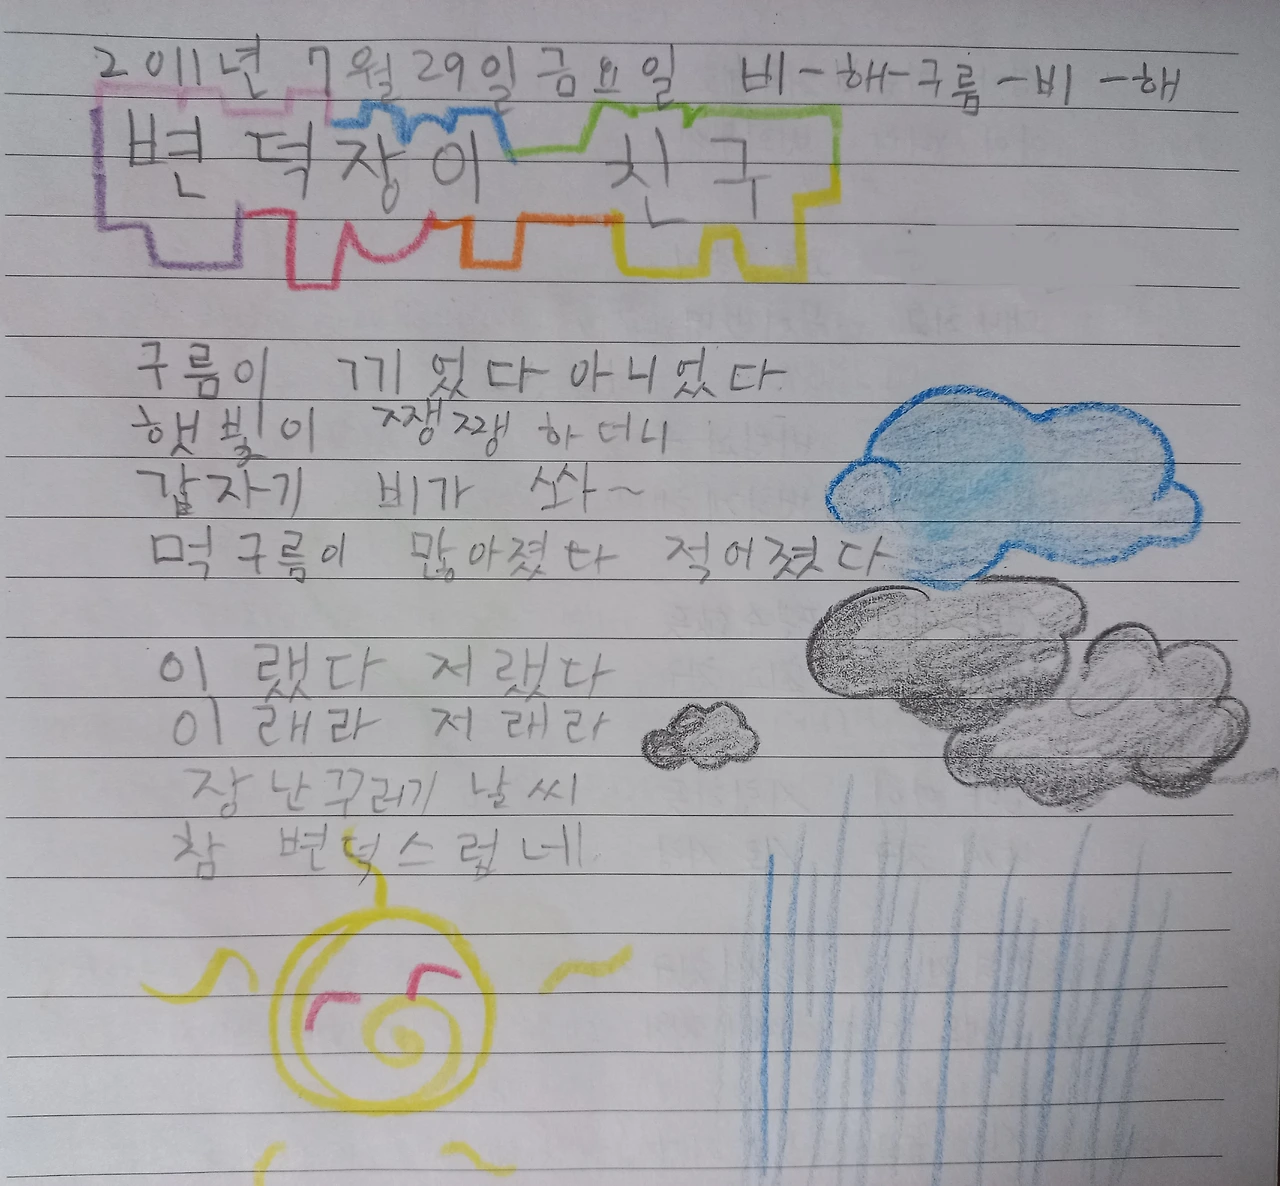 2011년 7월 29일 금요일 비-해-구름-비-해
변덕장이 친구
구름이 끼었다 아니었다
햇빛이 쨍쨍 하더니
갑자기 비가 쏴~
먹구름이 많아졌다 적어졌다
이랬다 저랬다
이래라 저래라
장난꾸러기 날씨
참 변덕스럽네